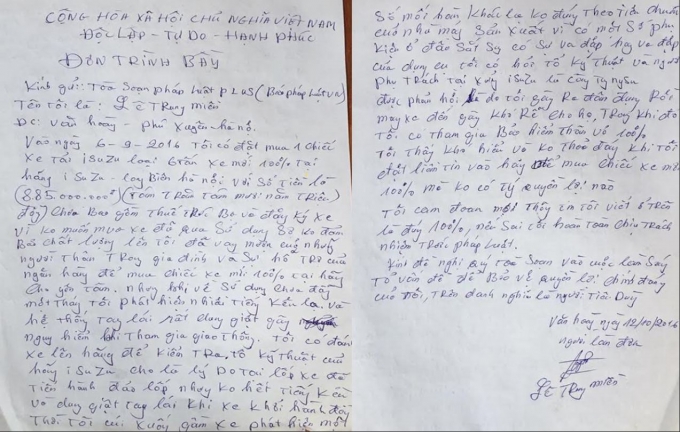 CỘNG HÒA XÃ HỘI CHỦ NGHĨA VIỆT NAM
ĐỘC LẬP - TỰ DO - HẠNH PHÚC
ĐƠN TRÌNH BẦY
Kính gửi: Tòa Soạn pháp luật PLUS (Báo pháp luật VN)
Tên tôi là: Lê Trong miên
ĐC: Văn hoàng - Phú Xuyên - hà nội.
Vào ngày 6-9-2016 Tôi có đặt mua 1 chiếc
xe tải isuzu loại 6 tấn xe mới 100% tại
hãng isuzu - Long Biên hà nội với Số tiền là
(885.000.000đ) (Tám Trăm Tám mươi năm Triệu)
đấy Chưa Bao gồm Thuế Trước Bạ và đăng ký xe
vì ko muốn mua xe đã qua Sử dụng Sẽ ko đảm
Bảo chất lượng lên tôi đã vay mượn của những
người Thân Trong gia đình và Sự hỗ Trợ của
ngân hàng để mua chiếc xe mới 100% tại hãng
cho yên tâm. nhưng khi về Sử dụng chưa đầy
một Tháng Tôi phát hiện nhiều Tiếng kêu lạ. và
hệ thống tay lái. rất dung giật gây
nguy hiểm khi Tham gia giao Thông. Tôi có đánh
xe lên hãng để kiểm Tra, tổ kỹ Thuật của
hãng isuzu cho là lý Do tại lốp xe đã
tiến hành đảo lốp nhưng ko hết Tiếng kêu
và dung giật tay lái khi xe khởi hành
Thời Tôi cúi xuống gầm xe phát hiện một
Số mối hàn khác lạ ko đúng Theo Tiêu chuẩn
của nhà máy Sản xuất vì có một Số phụ
kiện ở đầu Sát Sy có Sự va đập hay va đập
của dụng cụ tôi có hỏi tổ kỹ Thuật và người
phụ Trách tại xưởng isuzu là công ty
được phản hồi là do tôi gây Ra
máy xe đến gây khó Rễ cho họ, Trong khi đó
Tôi có tham gia Bảo hiểm Thân vỏ 100%
Tôi Thấy khó hiểu và ko Thỏa đáng khi tôi
đặt liềm tin vào hãng để mua chiếc xe mới
100% mà ko có tý quyền lợi nào
Tôi cam đoan mọi Thông tin tôi viết ở trên
là đúng 100%, nếu Sai tôi hoàn toàn Chịu Trách
nhiệm Trước pháp luật.
Kính đề nghị quý Tòa Soạn vào cuộc làm Sáng
Tỏ vấn đề để Bảo vệ quyền lợi chính đáng
của tôi, Trên danh nghĩa là người Tiêu Dùng
Văn hoàng ngày 12/10/2016
người làm đơn
Lê Trong miên